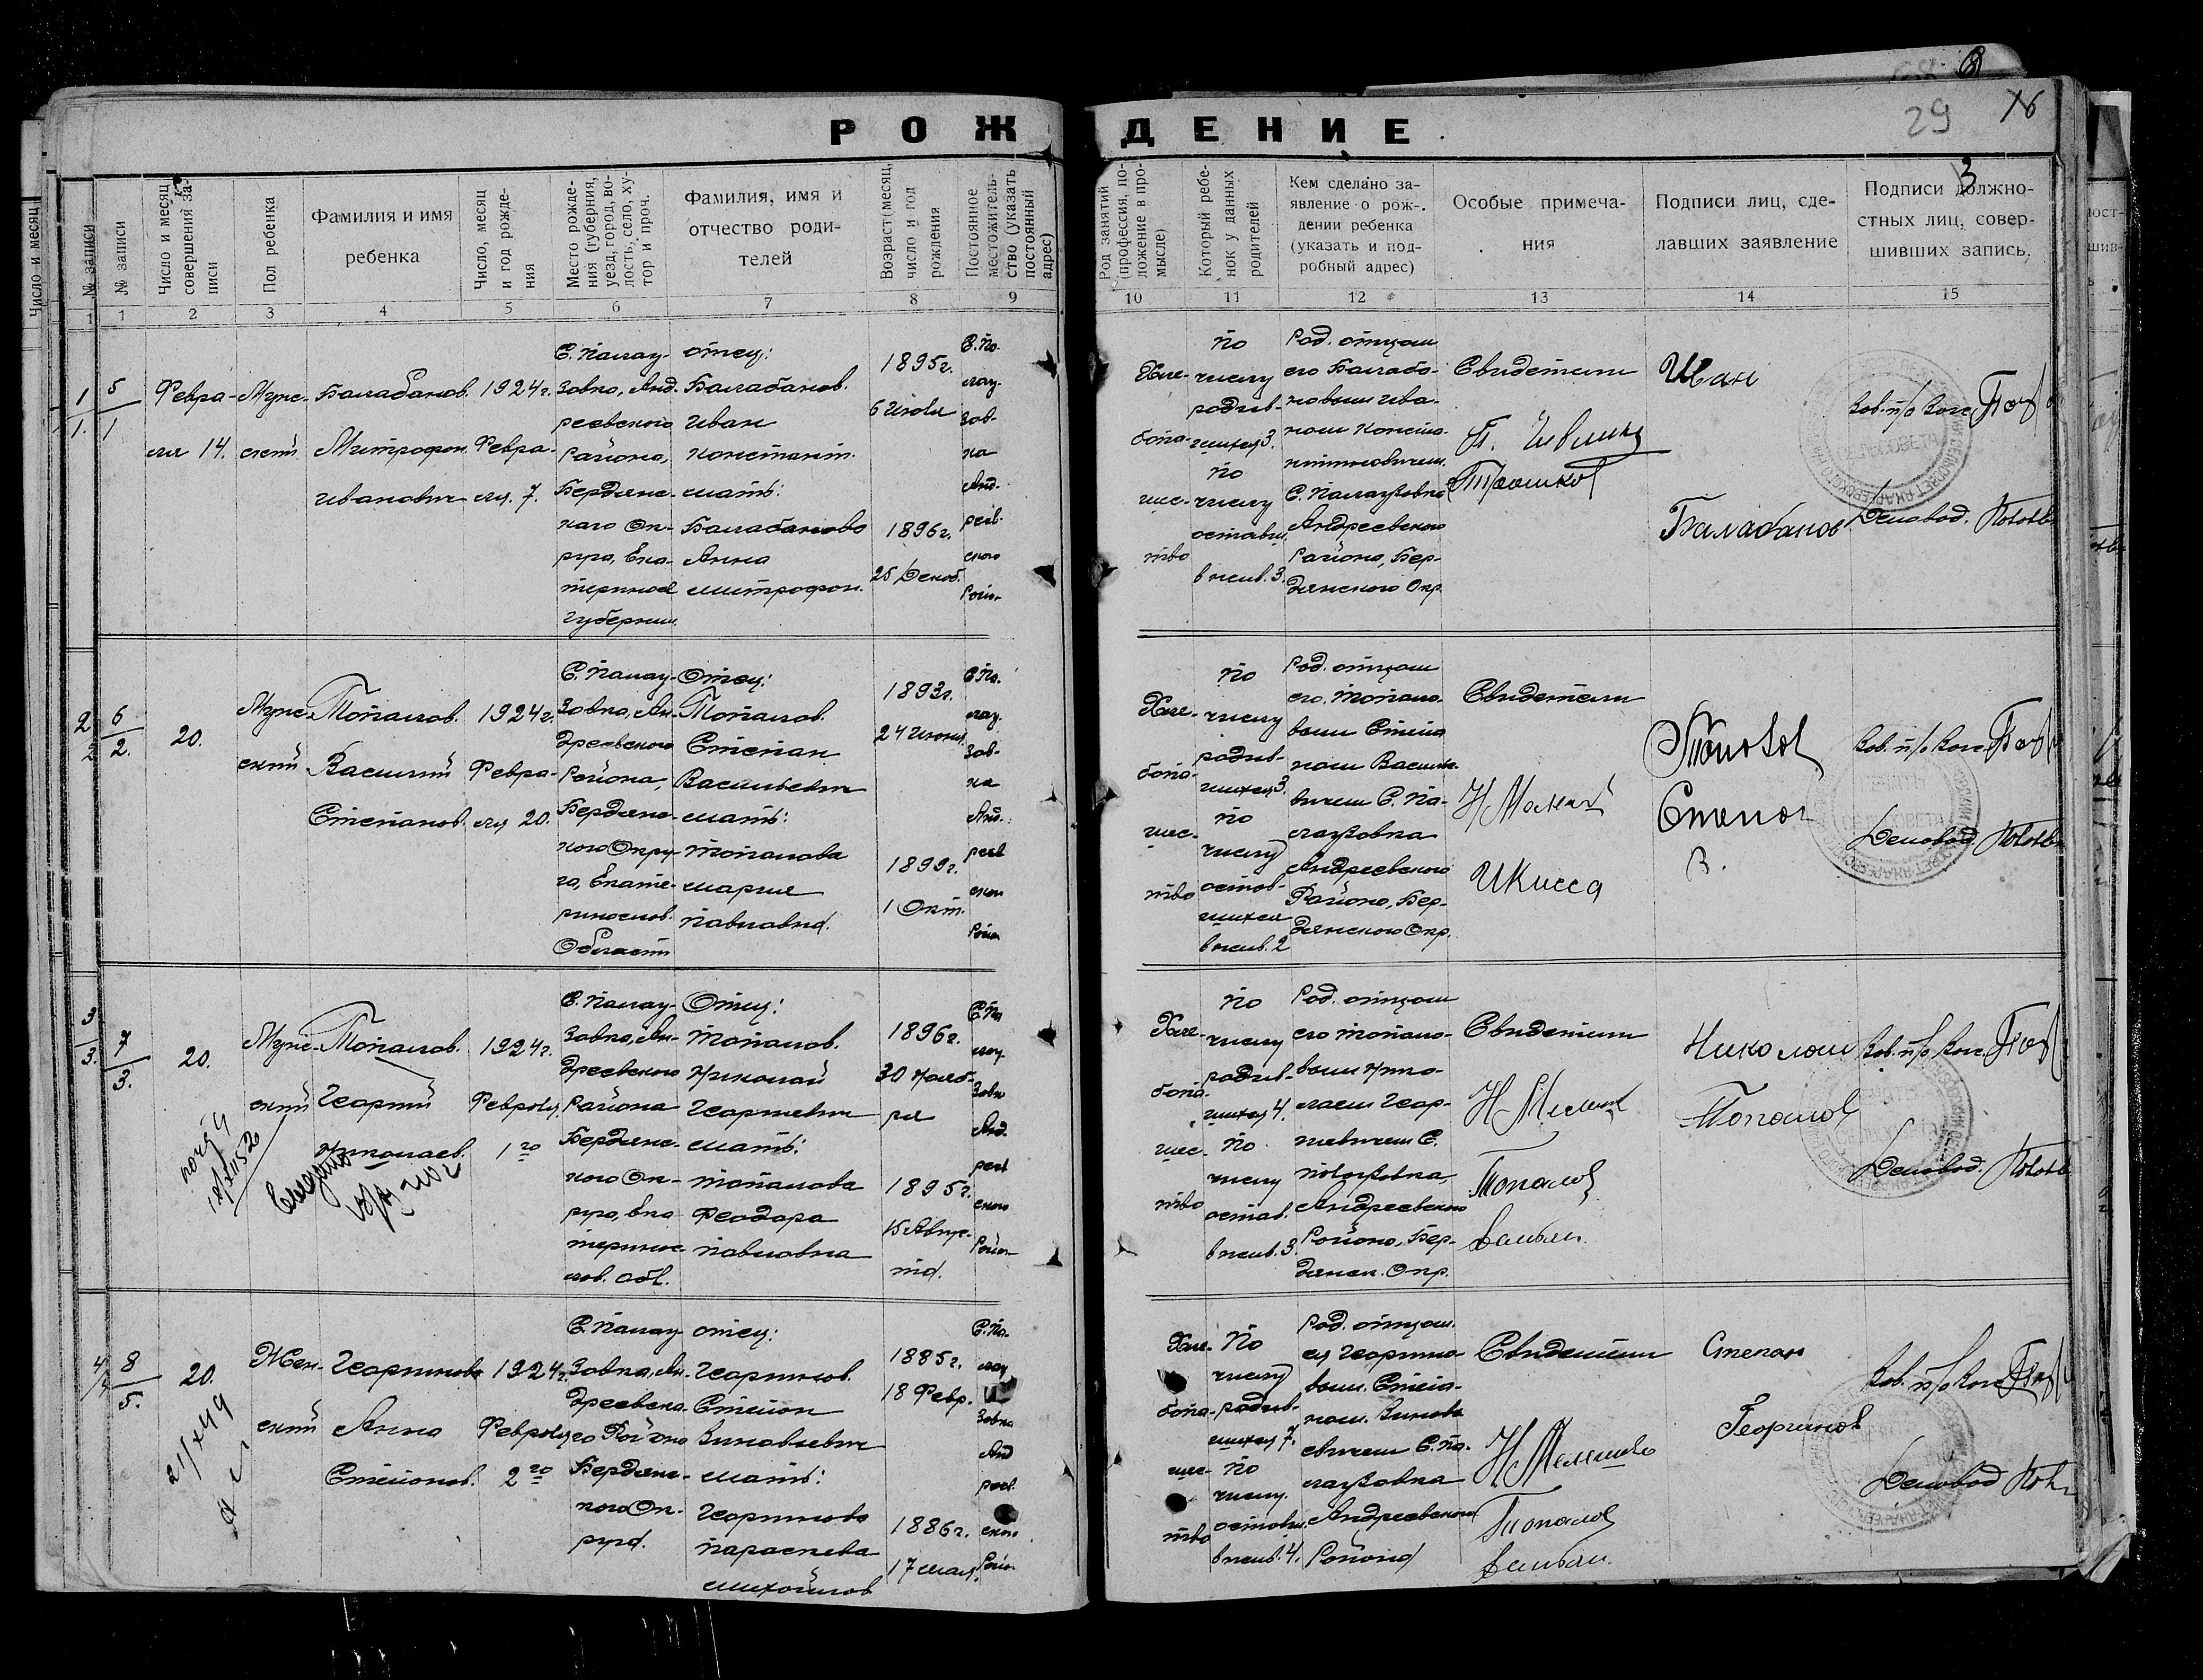 РОЖДЕНИЕ.
29 16
3
№ записи
№ записи
Число и месяц совершения записи
Пол ребенка
Фамилия и имя ребенка
Число, месяц и год рождения
Место рождения (губерния, уезд, город, волость, село, хутор и проч.
Фамилия, имя и отчество родителей
Возраст (месяц, число и год рождения
Постоянное местожительство (указать постоянный адрес)
Род занятий (профессия, положение в промысле)
Который ребенок у данных родителей
Кем сделано заявление о рождении ребенка (указать и подробный адрес)
Особые примечания
Подписи лиц, сделавших заявление
Подписи должностных лиц, совершивших запись.
1 1 2 3 4 5 6 7 8 9 10 11 12 13 14 15
1/1. 5/1
Февра-
ля 14.
Мужс-
ский
Балабанов.
Митрофон
иванович
1924г.
Февра-
ля. 7.
С. Палау-
зовка, Анд-
реевского
Района,
Бердянс-
каго Ок-
руга, Ека-
губернии.
отец:
Балабанов.
Иван
константи.
мать:
Балабанова
Анна
митрофон.
1895г.
6 Июля
1896г.
25 Декаб.
С. Па-
лау-
зов-
ка
Анд-
реев-
ского
Район
Хле-
бопа-
шес-
тво
по
числу
родив-
шихся 3.
по
числу
оставш.
в жив. 3.
Род. отцом
его Балаба-
новым ива-
ном конста-
нтиновичем.
С. Палаузовка
Андреевского
Района, Бер-
дянского Окр.
Свидетели
Иван
Балабанов
Деловод.
2/2 6/2.
20.
Мужс-
ский
Топалов.
Василий
Степанов.
1924г.
Февра-
ля 20.
С. Палау-
зовка, Ан-
дреевского
Района,
Бердянс-
кого Окру-
га, Екате-
ринослов.
Области
Отец:
Топалов.
Степан
Васильевич
мать:
Топалова
мария
павловна.
1893г.
24 Июня.
1899г.
1 Окт.
С. Па-
лау-
зов-
ка
Анд-
реев
ског
Район
Хле-
бопа-
шес-
тво
по
числу
родив-
шихся 3.
по
числу
остав-
шихся
в жив. 2
Род. отцом
его. Топало-
вым Степа
ном Василь-
вичем С. Па-
лаузовка
Андреевского
Района, Бер-
дянского Окр.
Свидетели
И Кисса
Степан
В.
Деловод.
3/3. 7/3.
20.
Мужс-
ский
Топалов.
Георгий
николаев.
1924г.
Февраля
1го
С. Палау-
зовка, Ан-
дреевского
Района
Бердянс-
кого Ок-
руга, Ека
теринос-
лов. Обл.
Отец:
Топалов.
николай
Георгиевич
мать:
топалова
Феодора
павловна
1896г.
30 нояб-
ря
1895г.
15 Авгус-
та.
С. Па
лау-
зовк
Анд-
реев
ского
Район
Хле-
бопа-
шес-
тво
по
числу
родив-
шихся 4.
по
числу
остав.
в жив. 3.
Род. отцом
его топало-
вым нико-
лаем Геор-
гиевичем С.
Андреевского
Района, Бер-
дянск. Окр.
Свидетели
Топалов
Николай
Топалов
Деловод.
4/4 8/5.
20.
21/X49
Жен-
ский
Георгинова
Анна
Степанов.
1924г.
Февраля
2го
С. Палау-
зовка, Ан-
дреевско-
го Района
Бердянс-
кого Ок-
руга.
отец:
Георгинов.
Степан
Зиновьевич
мать:
Георгинова
параскева
михайлов
1885г.
18 Февр.
1886г.
17 мая.
С. Па-
лау
зовка
Анд
реев-
ского
Район
Хле-
бопа-
шес-
тво
По
числу
родив-
шихся 7.
по
числу.
оставш.
в жив. 4.
Род. отцом.
ея Георгино-
вым. Степа-
ном. Зиновь
евичем С. Па-
лаузовка
Андреевского
Района
Свидетели
Топалов
Степан
Георгинов
Деловод